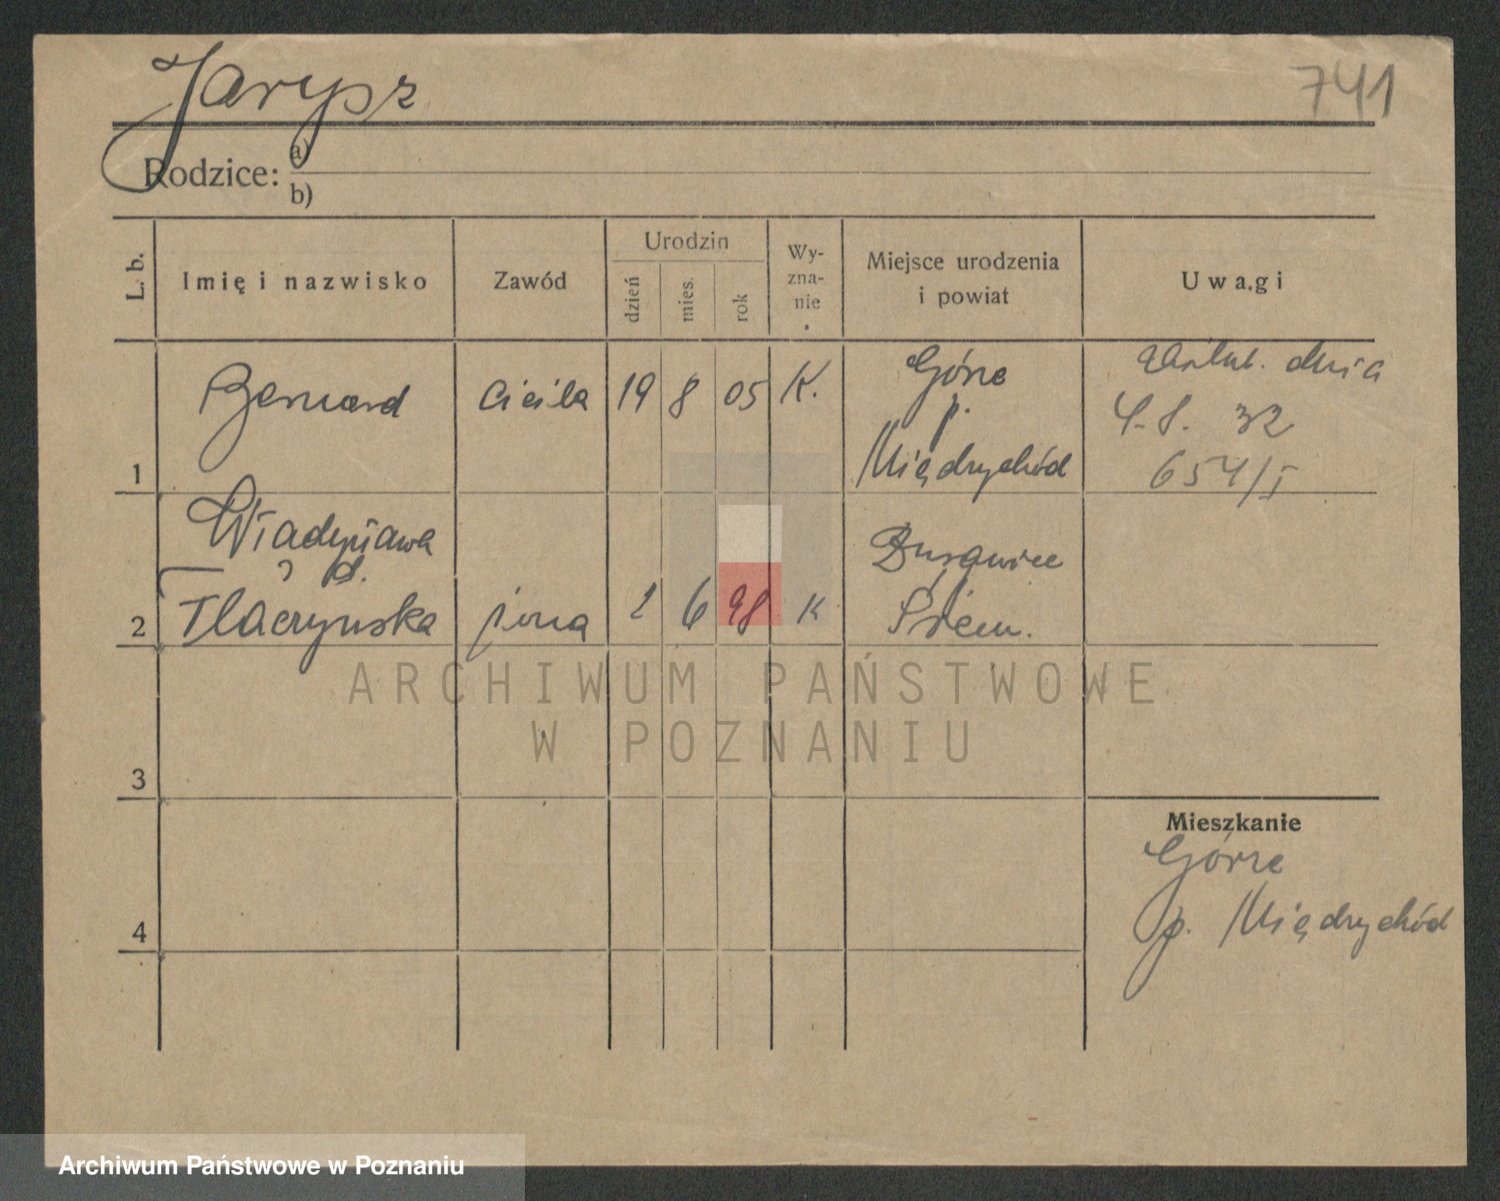 Jarysz
741
Rodzice: a)
b)
L. b.
Imię i nazwisko
Zawód
Urodzin
dzień
mies.
rok
Wy-
zna-
nie
Miejsce urodzenia
i powiat
Uwagi
1
Bernard
cieśla
19
8
05
K.
Górze
p.
Międrychód
dnia
4. 8. 32
654/I
2
Władysława
d.
Tlaczynska
żona
2
6
98
K
Śrem.
3
4
Mieszkanie
Górze
p. Międrychód
ARCHIWUM PAŃSTWOWE
W POZNANIU
Archiwum Państwowe w Poznaniu